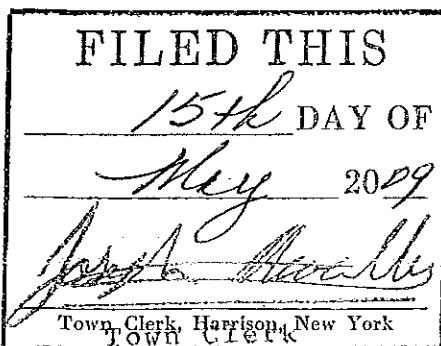 FILED THIS
15th DAY OF
May 2009
Town Clerk, Harrison, New York
Town Clerk